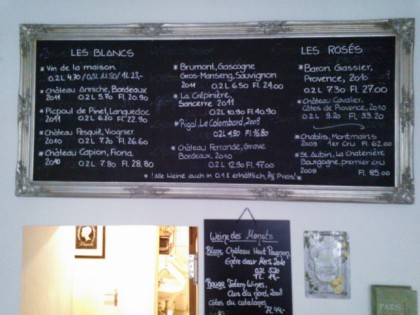 LES BLANCS
* Vin de la maison
0.2L 4.70 / 0.5L 11.50 / 1L 23,-
* Château Anniche, Bordeaux
2011 0.2L 5.70 Fl. 20.90
* Picpoul de Pinet, Languedoc
2011 0.2L 6.20 Fl. 22.90
* Château Pesquié, Viognier
2010 0.2L 7.20 Fl. 26.60
* Château Capion, Fiona
2010 0.2L 7.80 Fl. 28.80
* Brumont, Gascogne
Gros-Manseng, Sauvignon
2011 0.2L 6.50 Fl. 24.00
* La Crépinière,
Sancerre 2011
0.2L 10.90 Fl. 40.90
* Rigal, Le Colombard, 2009
0.2L 4.50 Fl. 16.80
* Château Ferrande, Grave
Bordeaux, 2010
0.2L 12.90 Fl. 47.00
* alle Weine auch in 0.1L erhältlich
LES ROSÉS
* Baron Gassier,
Provence, 2010
0.2L 7.30 Fl. 27.00
* Château Cavalier,
Côtes de Provence, 2010
0.2L 9.20 Fl. 33.20
* Chablis, Montmains
2009 1er Cru Fl. 62.00
* St. Aubin, La Chatenière
Bourgogne, premier cru
2009 Fl. 85.00
Weine des Monats
Blanc Château Haut
Entre deux Mers 2010
0.2L
Rouge
2009
côtes du catalanes
PARIS